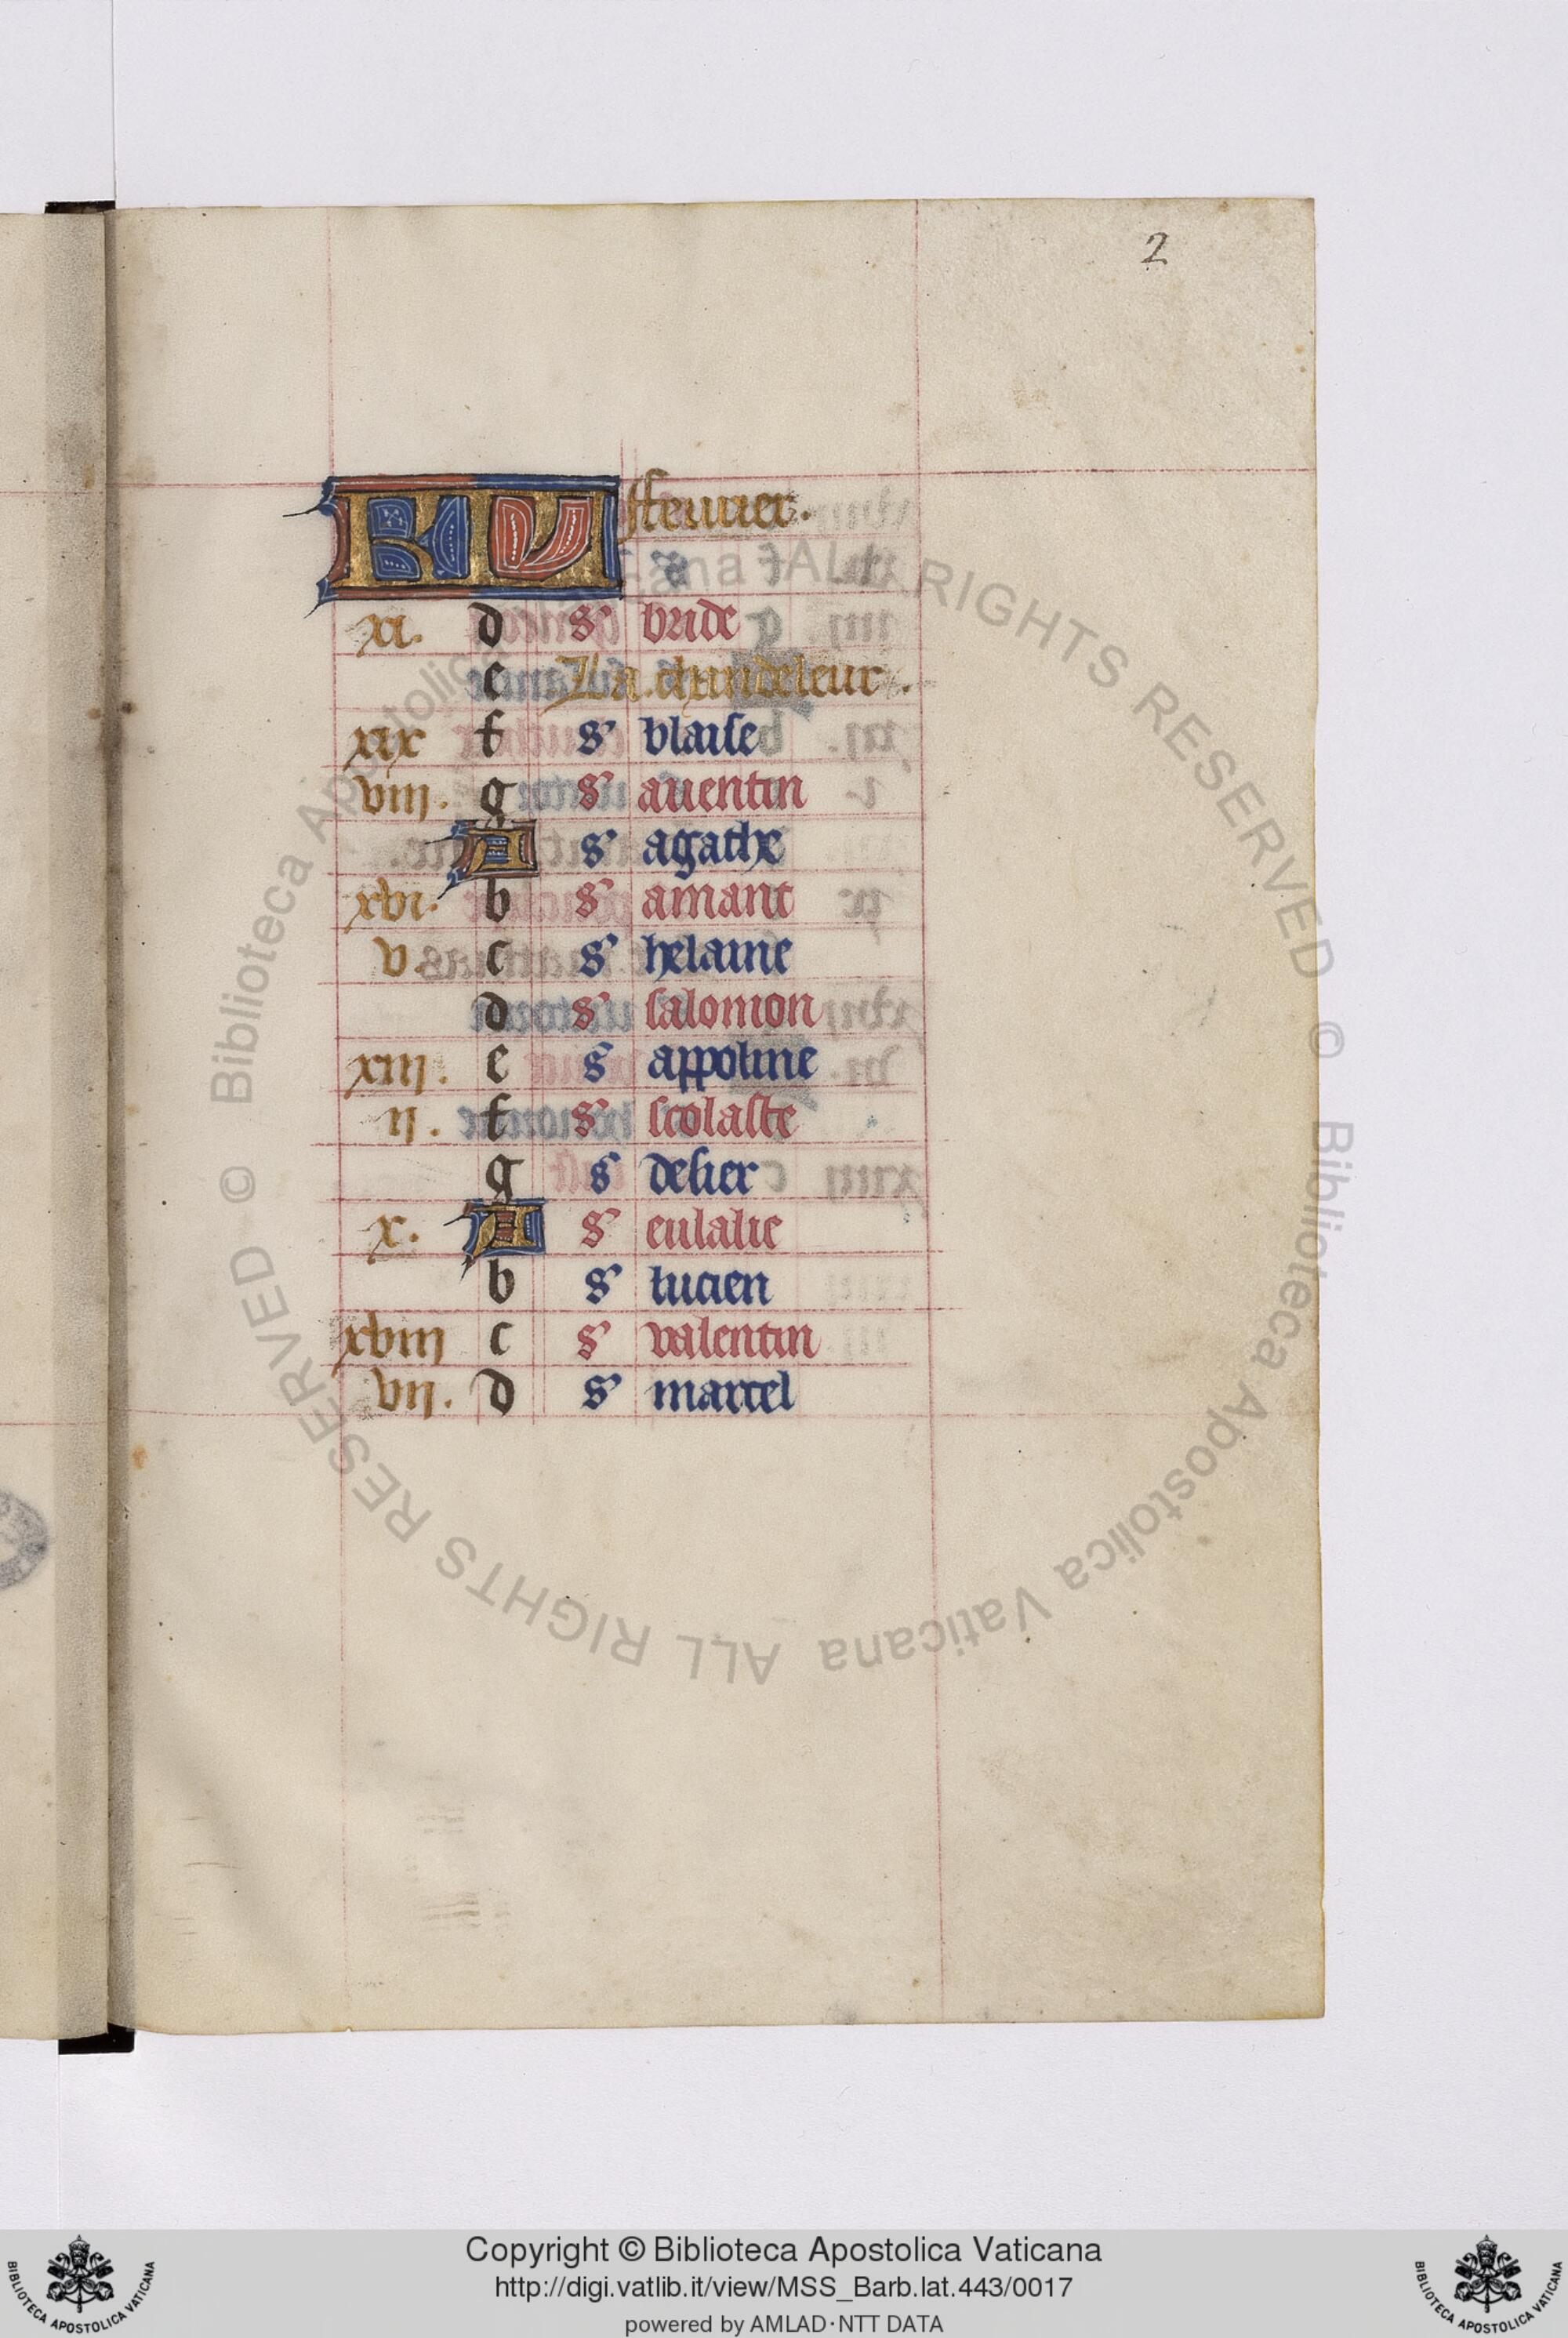 2
KL ffeurier.
xi. d s' bride
e La chandeleur.
xix f s' blaise
viii. g s' auentin
A s' agathe
xvi. b s' amant
v. c s' helaine
d s' salomon
xiii. e s appoline
ii. f s' scolaste
g s desier
x. A s' eulalie
b s' lucien
xviii c s' valentin
vii. d s' marcel
© Biblioteca Apostolica Vaticana ALL RIGHTS RESERVED © Biblioteca Apostolica Vaticana ALL RIGHTS RESERVED
Copyright © Biblioteca Apostolica Vaticana
http://digi.vatlib.it/view/MSS_Barb.lat.443/0017
powered by AMLAD·NTT DATA
BIBLIOTECA APOSTOLICA VATICANA
BIBLIOTECA APOSTOLICA VATICANA